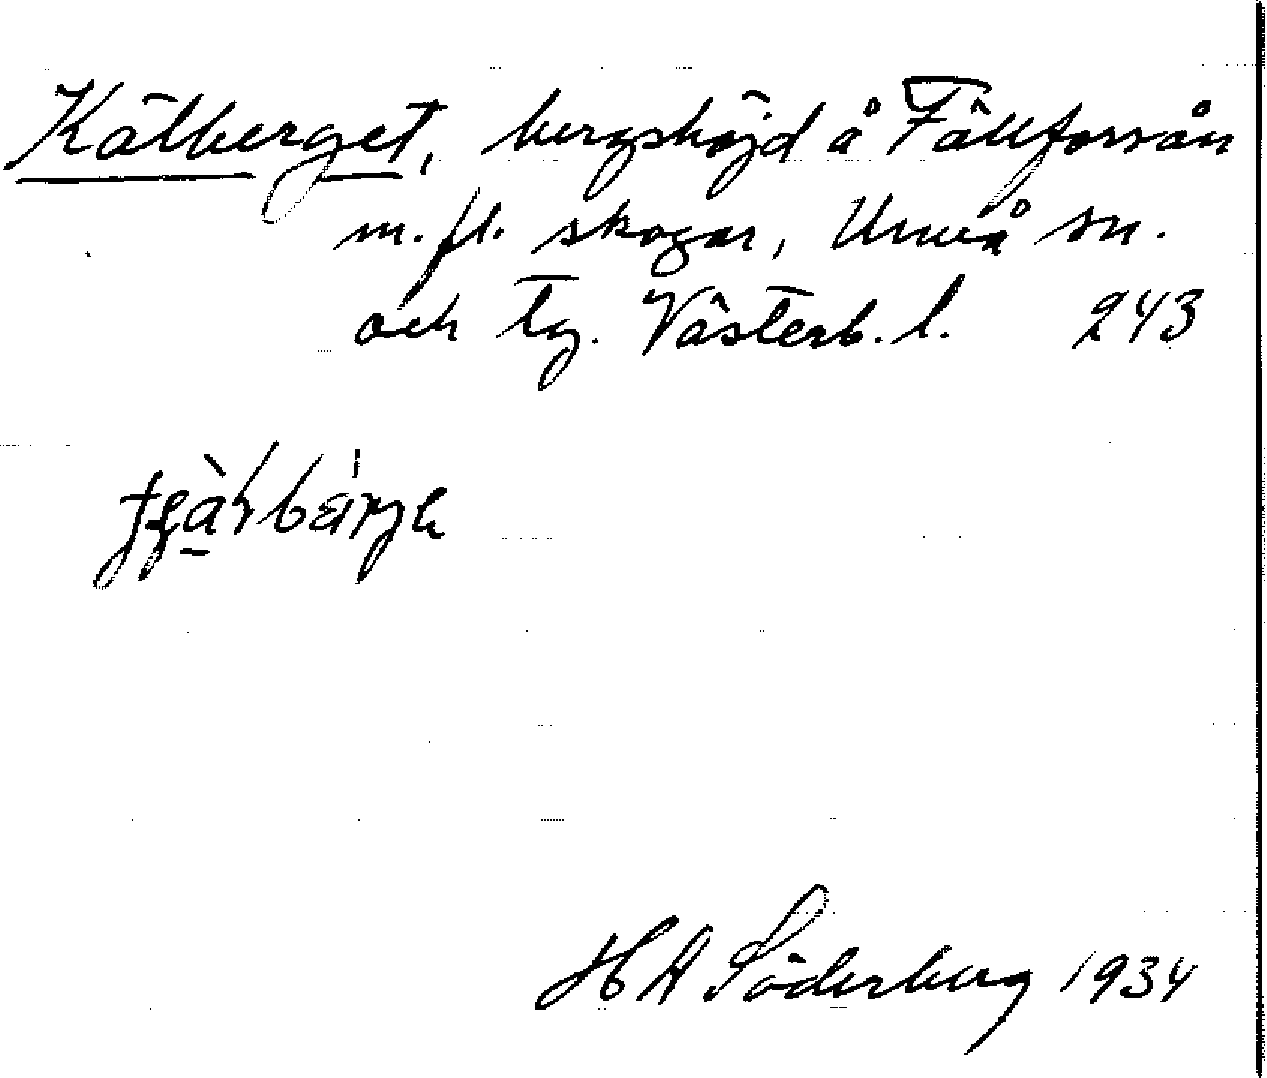 Kälberget, bergshöjd å Fällforsån
m. fl. skogar, Umeå sn.
och tg. Västerb. l. 243
H A Söderberg 1934